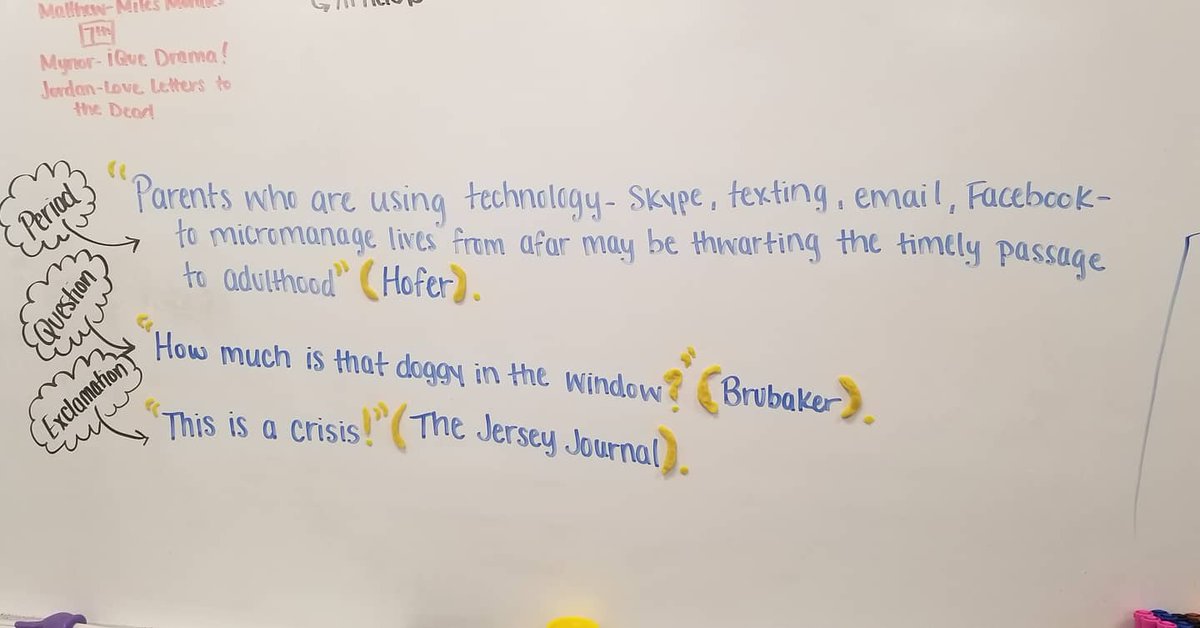 Matthew- Miles
7th
Mynor- ¡Que Drama!
Jordan-Love Letters to
the Dead
Period
"Parents who are using technology- Skype, texting, email, Facebook-
to micromanage lives from afar may be thwarting the timely passage
to adulthood" (Hofer).
Question
"How much is that doggy in the window?" (Brubaker).
Exclamation
"This is a crisis!" (The Jersey Journal).